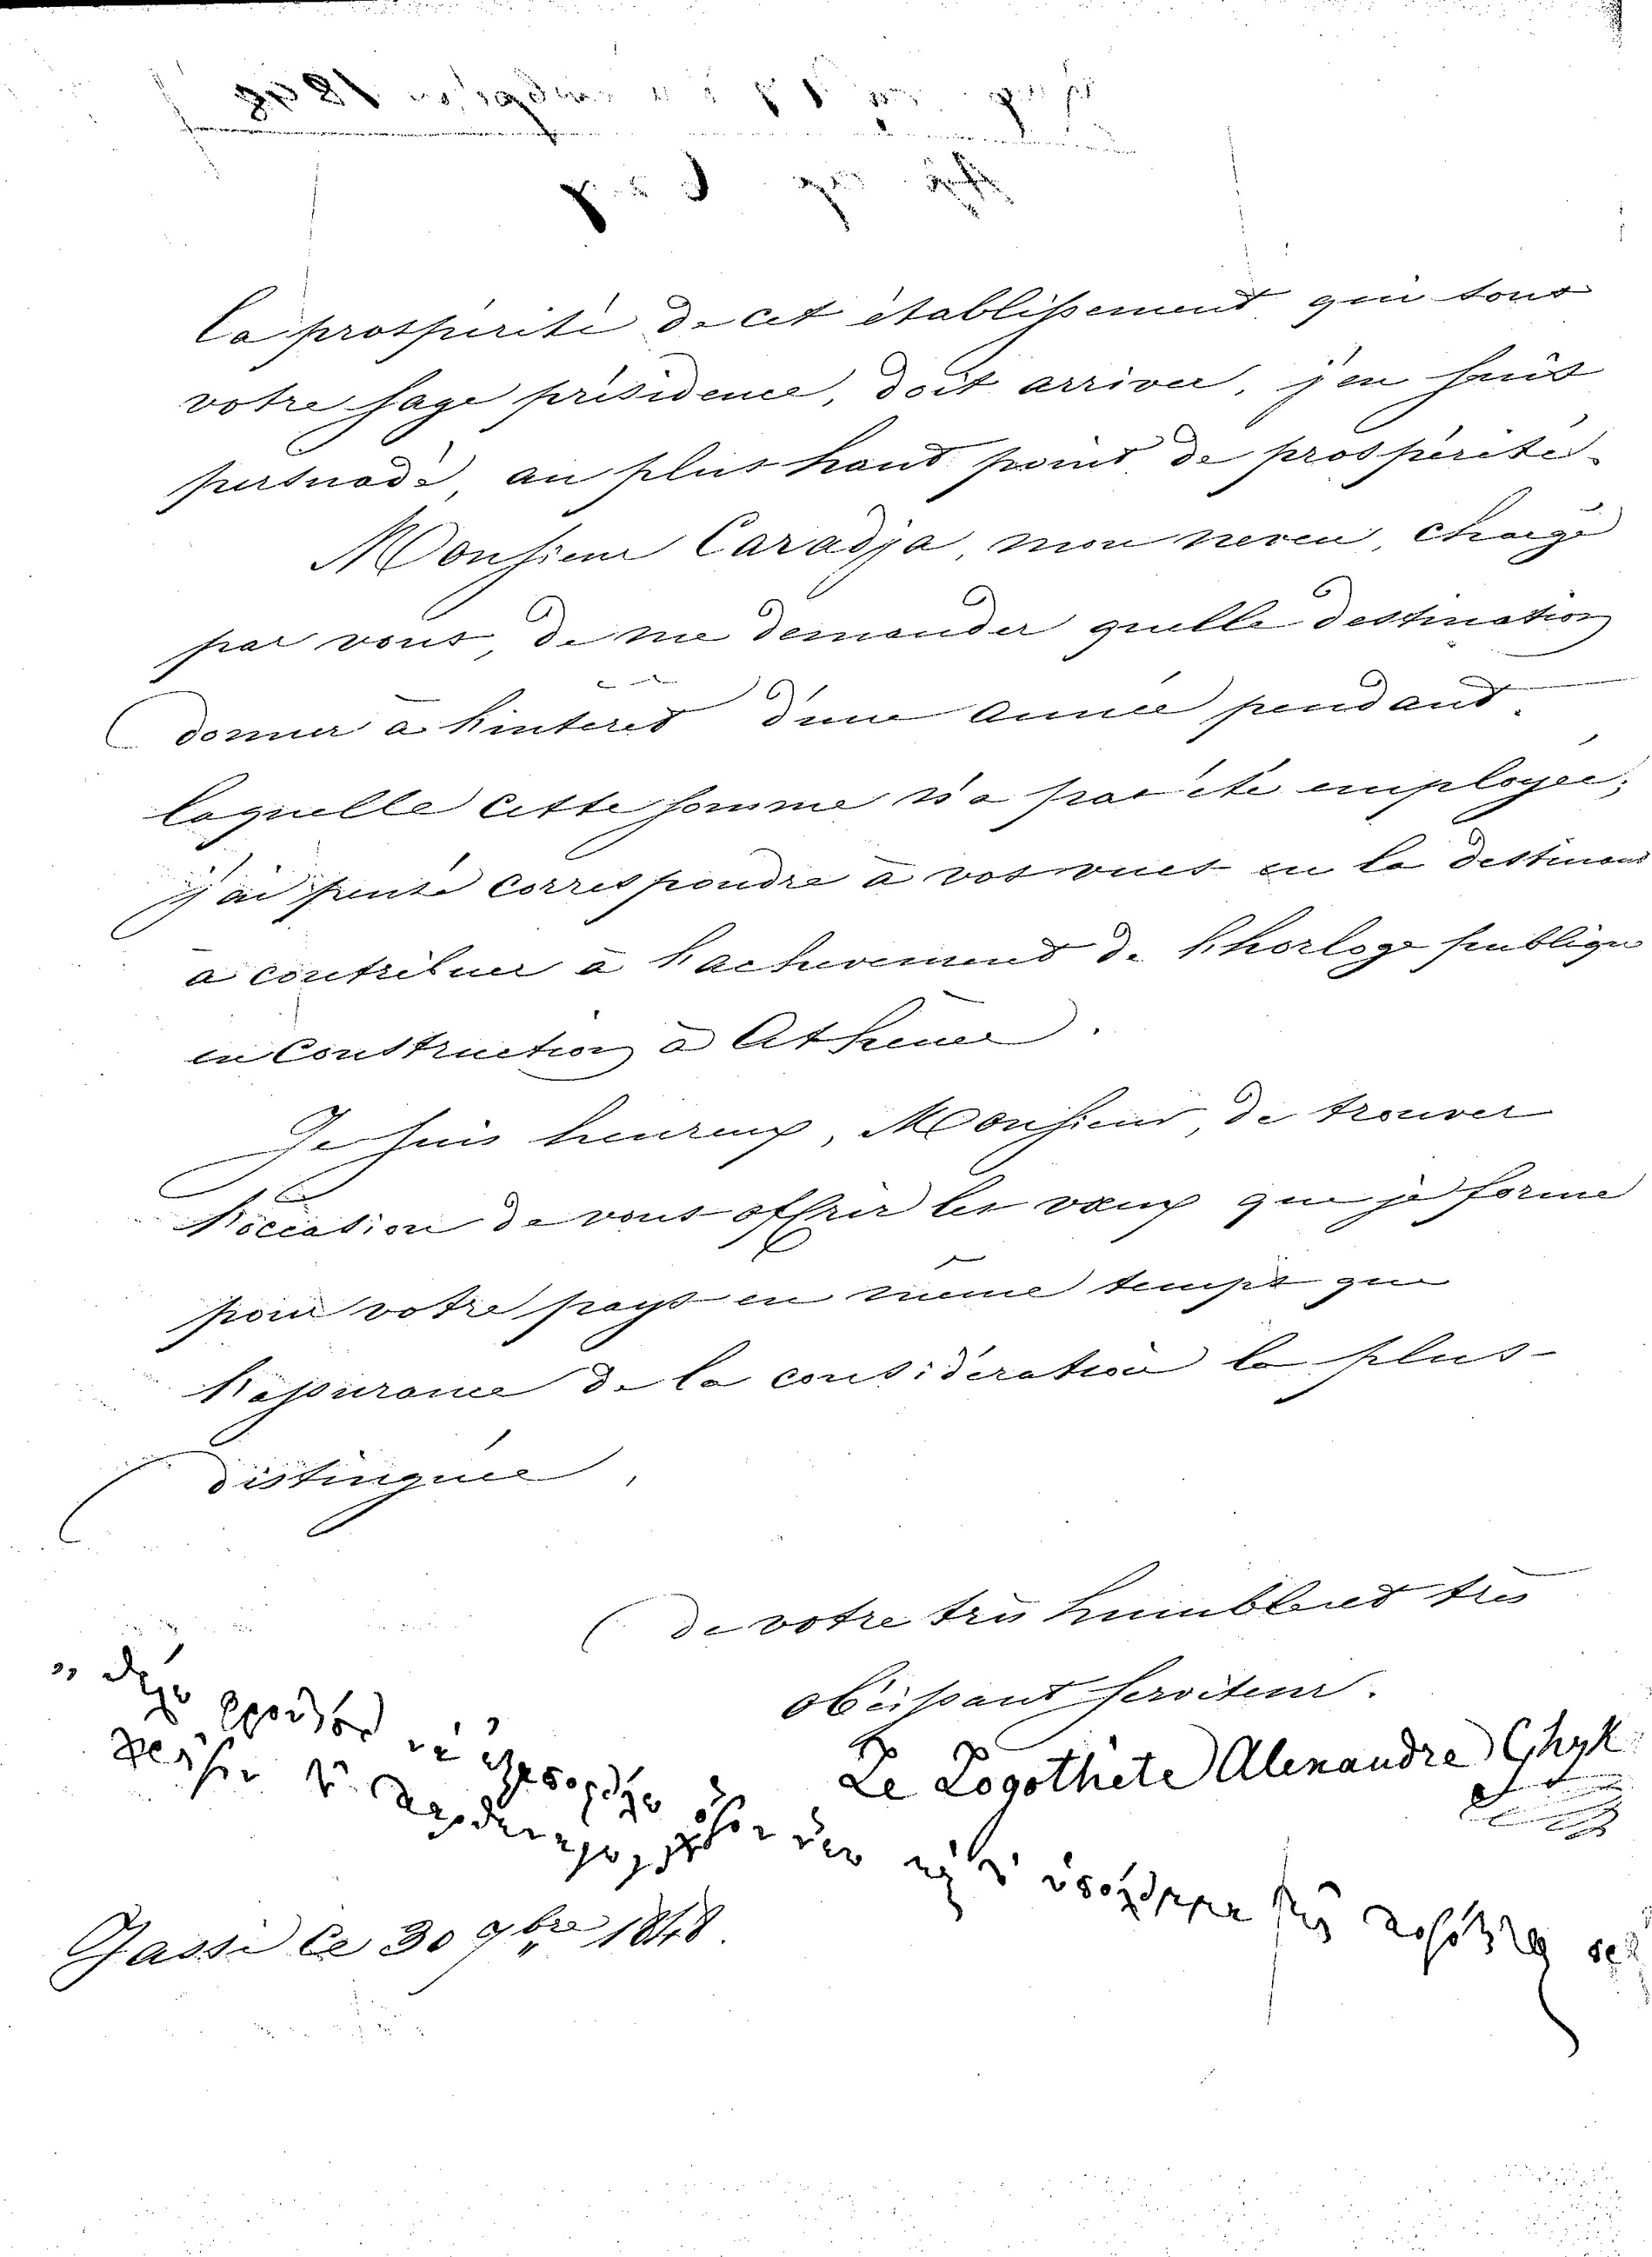 la prospérité de cet établissement qui sous
votre sage présidence, doit arriver, j'en suis
persuadé, au plus haut point de prospérité.
Monsieur Caradja, mon neveu, chargé
par vous, de me demander quelle destination
donner à l'intérêt d'une année pendant
laquelle cette somme n'a pas été employée;
j'ai pensé correspondre à vos vues en la destinant
à contribuer à l'achèvement de l'horloge publique
en construction à Athènes.
Je suis heureux, Monsieur, de trouver
l'occasion de vous offrir les vœux que je forme
pour votre pays en même temps que
l'assurance de la considération la plus
distinguée,
de votre très humble et très
obéissant serviteur.
Le Logothète Alexandre Ghyk
Jassi le 30 9bre 1848.